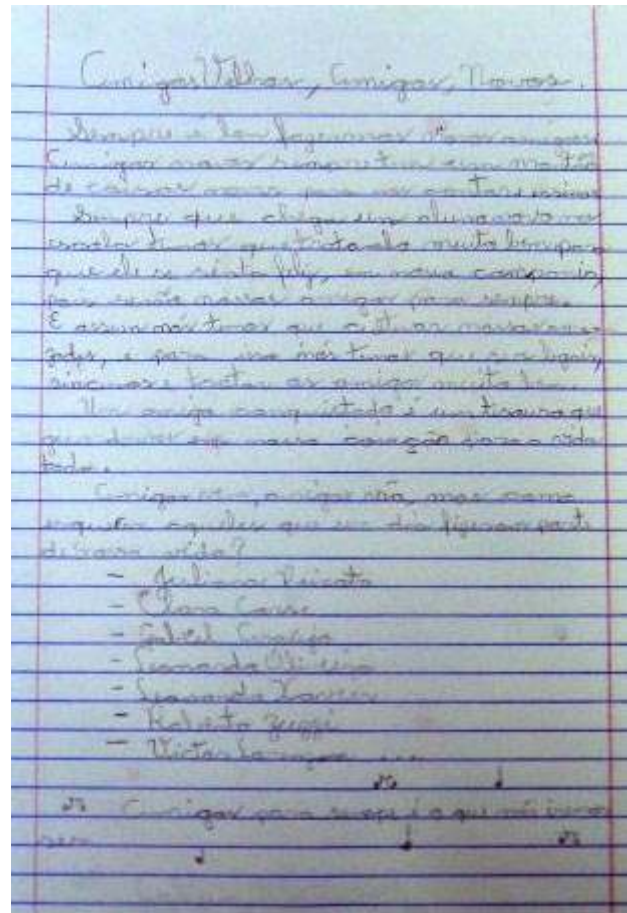 Amigos Velhos, Amigos, Novos.
Sempre é bom fazermos novos amigos
Amigos novos sempre tem um montão
de coisas novas para nos contar
Sempre que chega um aluno novo na
escola temos que tratá-lo muito bem para
que ele se sinta feliz, em nossa companhia,
pois serão nossos amigos para sempre.
E assim nós temos que nossas ami-
zades, e para isso nós temos que ser legais,
sinceros e tratar os amigos muito bem.
Um amigo conquistado é um tesouro que
em nosso coração para a vida
toda.
Amigos vem, amigos vão, mas como
esquecer aqueles que um dia fizeram parte
de nossa vida?
- Juliana
- Clara
- Gabriel Araújo
- Leonardo Oliveira
- Leonardo Xavier
- Roberto
- Victor
Amigos para sempre é o que nós iremos
ser